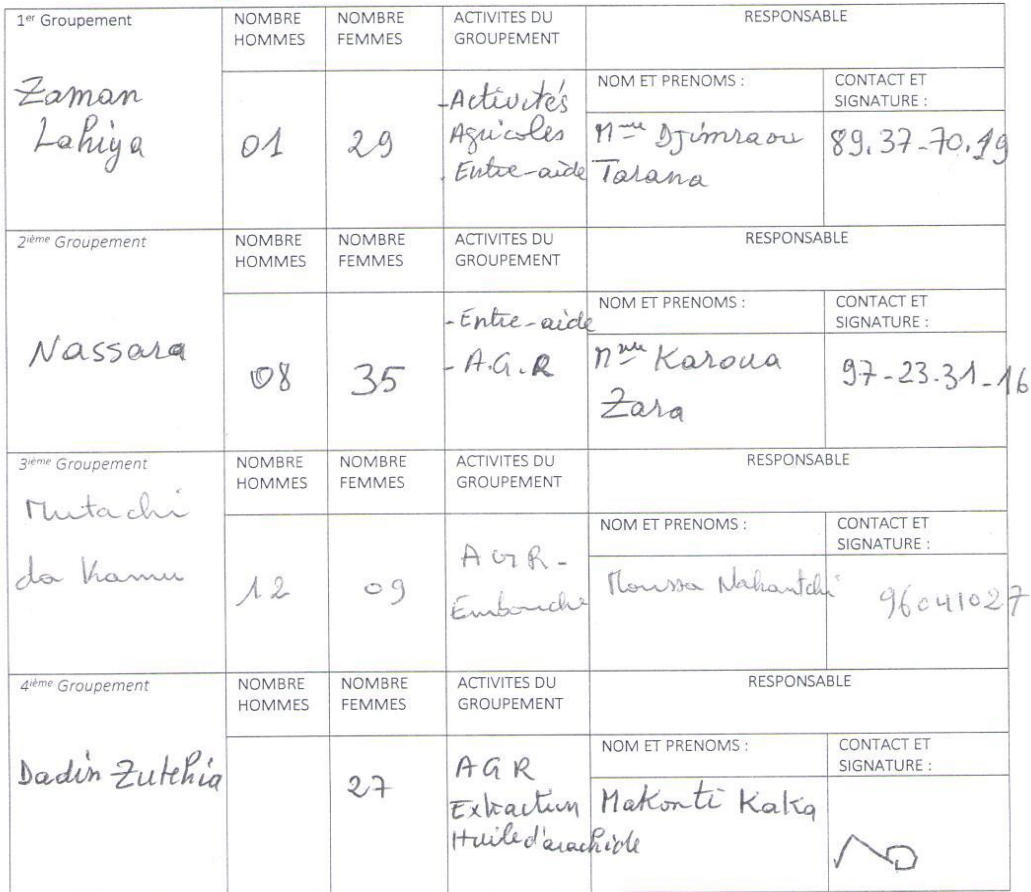 1er Groupement
NOMBRE HOMMES
NOMBRE FEMMES
ACTIVITES DU GROUPEMENT
RESPONSABLE
Zaman
Lahiya
01
29
-Activités
Agricoles
. Entre-aide
NOM ET PRENOMS :
Mme Djimraou
Tarana
CONTACT ET SIGNATURE :
89.37-70.19
2ième Groupement
NOMBRE HOMMES
NOMBRE FEMMES
ACTIVITES DU GROUPEMENT
RESPONSABLE
Nassara
08
35
- Entre-aide
- A.G.R
NOM ET PRENOMS :
Mme Karoua
Zara
CONTACT ET SIGNATURE :
97-23.31-16
3ième Groupement
NOMBRE HOMMES
NOMBRE FEMMES
ACTIVITES DU GROUPEMENT
RESPONSABLE
Mutachi
da Kamu
12
09
AGR-
Embouche
NOM ET PRENOMS :
Moussa Nahantchi
CONTACT ET SIGNATURE :
96041027
4ième Groupement
NOMBRE HOMMES
NOMBRE FEMMES
ACTIVITES DU GROUPEMENT
RESPONSABLE
Dadin Zutchia
27
AGR
Extraction
Huile d'arachide
NOM ET PRENOMS :
Makonti Kaka
CONTACT ET SIGNATURE :